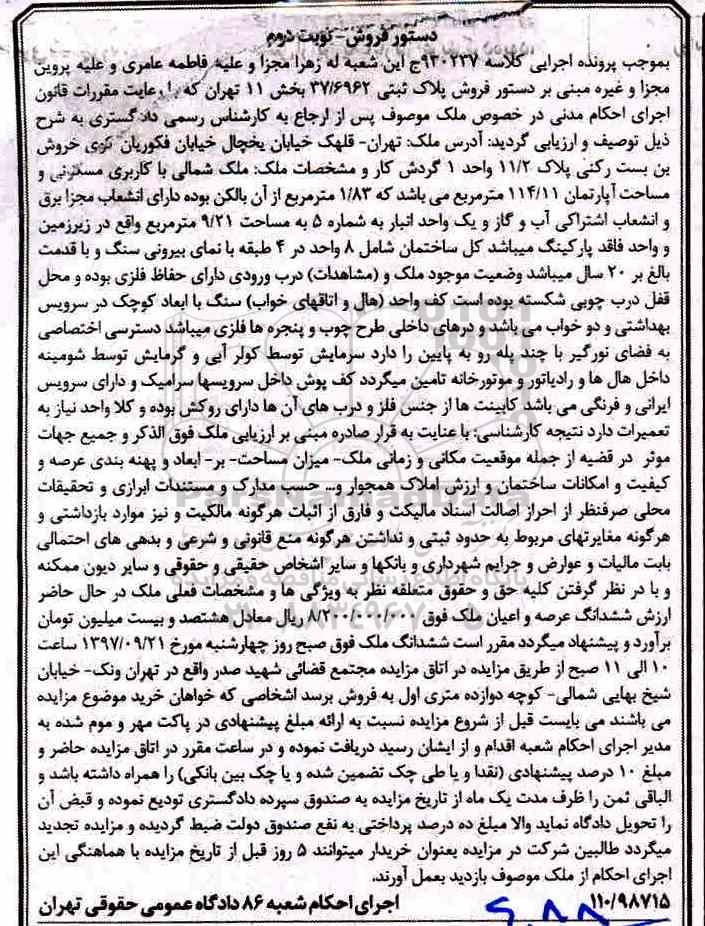 دستور فروش- نوبت دوم
بموجب پرونده اجرایی کلاسه ۹۳۰۲۳۷ج این شعبه له زهرا مجزا و علیه فاطمه عامری و علیه پروین
مجزا و غیره مبنی بر دستور فروش پلاک ثبتی ۳۷/۶۹۶۲ بخش ۱۱ تهران که با رعایت مقررات قانون
اجرای احکام مدنی در خصوص ملک موصوف پس از ارجاع به کارشناس رسمی دادگستری به شرح
ذیل توصیف و ارزیابی گردید: آدرس ملک: تهران- قلهک خیابان یخچال خیابان فکوریان کوی خروش
بن بست رکنی پلاک ۱۱/۲ واحد ۱ گردش کار و مشخصات ملک: ملک شمالی با کاربری مسکونی و
مساحت آپارتمان ۱۱۴/۱۱ مترمربع می باشد که ۱/۸۳ مترمربع از آن بالکن بوده دارای انشعاب مجزا برق
و انشعاب اشتراکی آب و گاز و یک واحد انبار به شماره ۵ به مساحت ۹/۲۱ مترمربع واقع در زیرزمین
و واحد فاقد پارکینگ میباشد کل ساختمان شامل ۸ واحد در ۴ طبقه با نمای بیرونی سنگ و با قدمت
بالغ بر ۲۰ سال میباشد وضعیت موجود ملک و (مشاهدات) درب ورودی دارای حفاظ فلزی بوده و محل
قفل درب چوبی شکسته بوده است کف واحد (هال و اتاقهای خواب) سنگ با ابعاد کوچک در سرویس
بهداشتی و دو خواب می باشد و درهای داخلی طرح چوب و پنجره ها فلزی میباشد دسترسی اختصاصی
به فضای نورگیر با چند پله رو به پایین را دارد سرمایش توسط کولر آبی و گرمایش توسط شومینه
داخل هال ها و رادیاتور و موتورخانه تامین میگردد کف پوش داخل سرویسها سرامیک و دارای سرویس
ایرانی و فرنگی می باشد کابینت ها از جنس فلز و درب های آن ها دارای روکش بوده و کلا واحد نیاز به
تعمیرات دارد نتیجه کارشناسی: با عنایت به قرار صادره مبنی بر ارزیابی ملک فوق الذکر و جمیع جهات
موثر در قضیه از جمله موقعیت مکانی و زمانی ملک- میزان مساحت- بر- ابعاد و پهنه بندی عرصه و
کیفیت و امکانات ساختمان و ارزش املاک همجوار و... حسب مدارک و مستندات ابرازی و تحقیقات
محلی صرفنظر از احراز اصالت اسناد مالیکت و فارق از اثبات هرگونه مالکیت و نیز موارد بازداشتی و
هرگونه مغایرتهای مربوط به حدود ثبتی و نداشتن هرگونه منع قانونی و شرعی و بدهی های احتمالی
بابت مالیات و عوارض و جرایم شهرداری و بانکها و سایر اشخاص حقیقی و حقوقی و سایر دیون ممکنه
و با در نظر گرفتن کلیه حق و حقوق متعلقه نظر به ویژگی ها و مشخصات فعلی ملک در حال حاضر
ارزش ششدانگ عرصه و اعیان ملک فوق ۸/۲۰۰/۰۰۰/۰۰۰ ریال معادل هشتصد و بیست میلیون تومان
برآورد و پیشنهاد میگردد مقرر است ششدانگ ملک فوق صبح روز چهارشنبه مورخ ۱۳۹۷/۰۹/۲۱ ساعت
۱۰ الی ۱۱ صبح از طریق مزایده در اتاق مزایده مجتمع قضائی شهید صدر واقع در تهران ونک- خیابان
شیخ بهایی شمالی- کوچه دوازده متری اول به فروش برسد اشخاصی که خواهان خرید موضوع مزایده
می باشند می بایست قبل از شروع مزایده نسبت به ارائه مبلغ پیشنهادی در پاکت مهر و موم شده به
مدیر اجرای احکام شعبه اقدام و از ایشان رسید دریافت نموده و در ساعت مقرر در اتاق مزایده حاضر و
مبلغ ۱۰ درصد پیشنهادی (نقدا و یا طی چک تضمین شده و یا چک بین بانکی) را همراه داشته باشد و
الباقی ثمن را ظرف مدت یک ماه از تاریخ مزایده به صندوق سپرده دادگستری تودیع نموده و قبض آن
را تحویل دادگاه نماید والا مبلغ ده درصد پرداختی به نفع صندوق دولت ضبط گردیده و مزایده تجدید
میگردد طالبین شرکت در مزایده بعنوان خریدار میتوانند ۵ روز قبل از تاریخ مزایده با هماهنگی این
اجرای احکام از ملک موصوف بازدید بعمل آورند.
۱۱۰/۹۸۷۱۵ اجرای احکام شعبه ۸۶ دادگاه عمومی حقوقی تهران